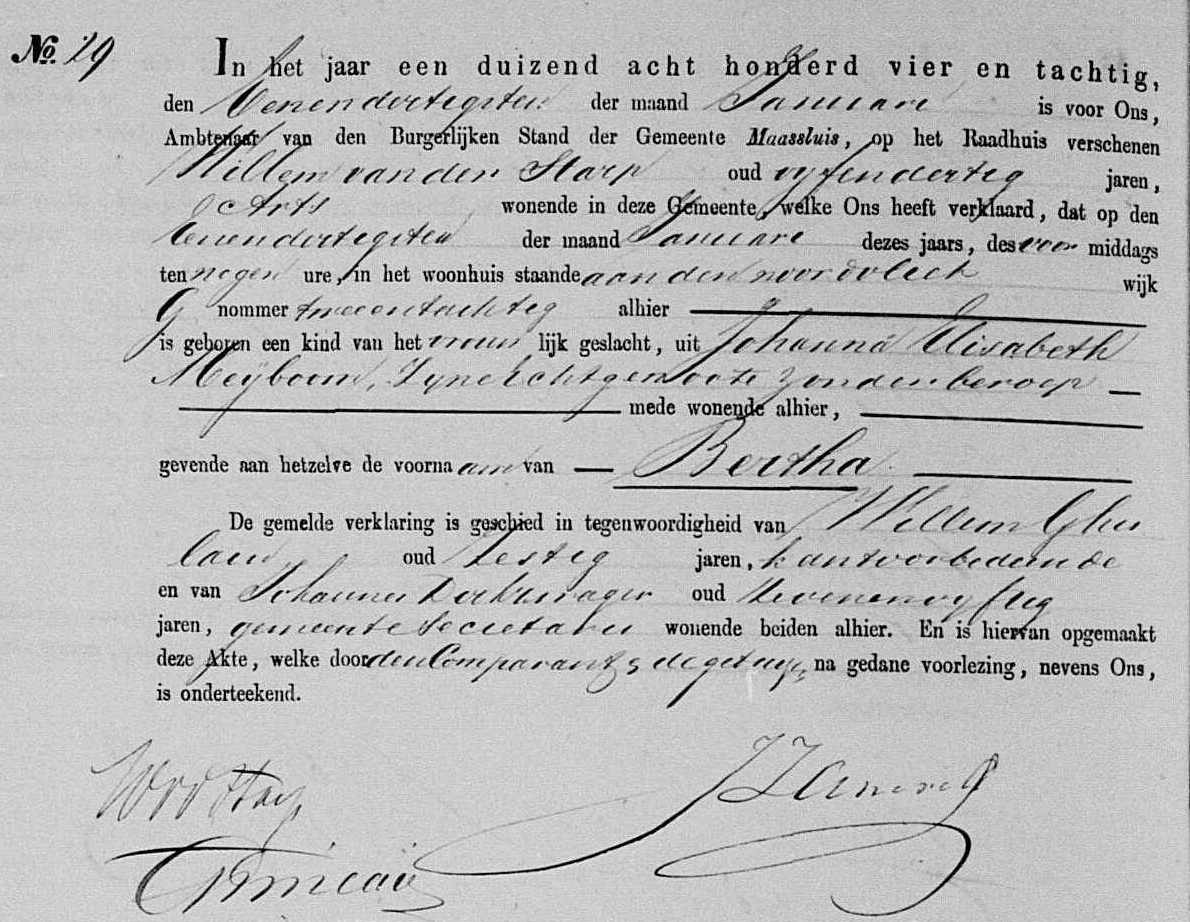 No. 29
In het jaar een duizend acht honderd vier en tachtig,
den Eenendertigsten der maand Januari is voor Ons,
Ambtenaar van den Burgerlijken Stand der Gemeente Maassluis, op het Raadhuis verschenen
Willem van der Starp oud vyfendertig jaren,
Arts wonende in deze Gemeente, welke Ons heeft verklaard, dat op den
Eenendertigsten der maand Januari dezes jaars, des voor middags
ten negen ure, in het woonhuis staande aan den noordvliet wijk
G nommer tweeentachtig alhier
is geboren een kind van het vrouw lijk geslacht, uit Johanna Elisabeth
Meijboom, Zyne Echtgenoote zonder beroep
mede wonende alhier,
gevende aan hetzelve de voorna am van Bertha
De gemelde verklaring is geschied in tegenwoordigheid van Willem
oud Zestig jaren, kantoorbediende
en van Johannes Dirkzwager oud Zevenenvyftig
jaren, gemeente Secretaris wonende beiden alhier. En is hiervan opgemaakt
deze Akte, welke door den Comparant & de getuigen na gedane voorlezing, nevens Ons,
is onderteekend.